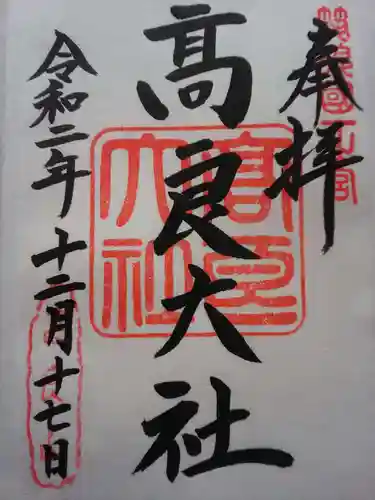 奉拝
高良大社
令和二年十二月十七日
高良
大社